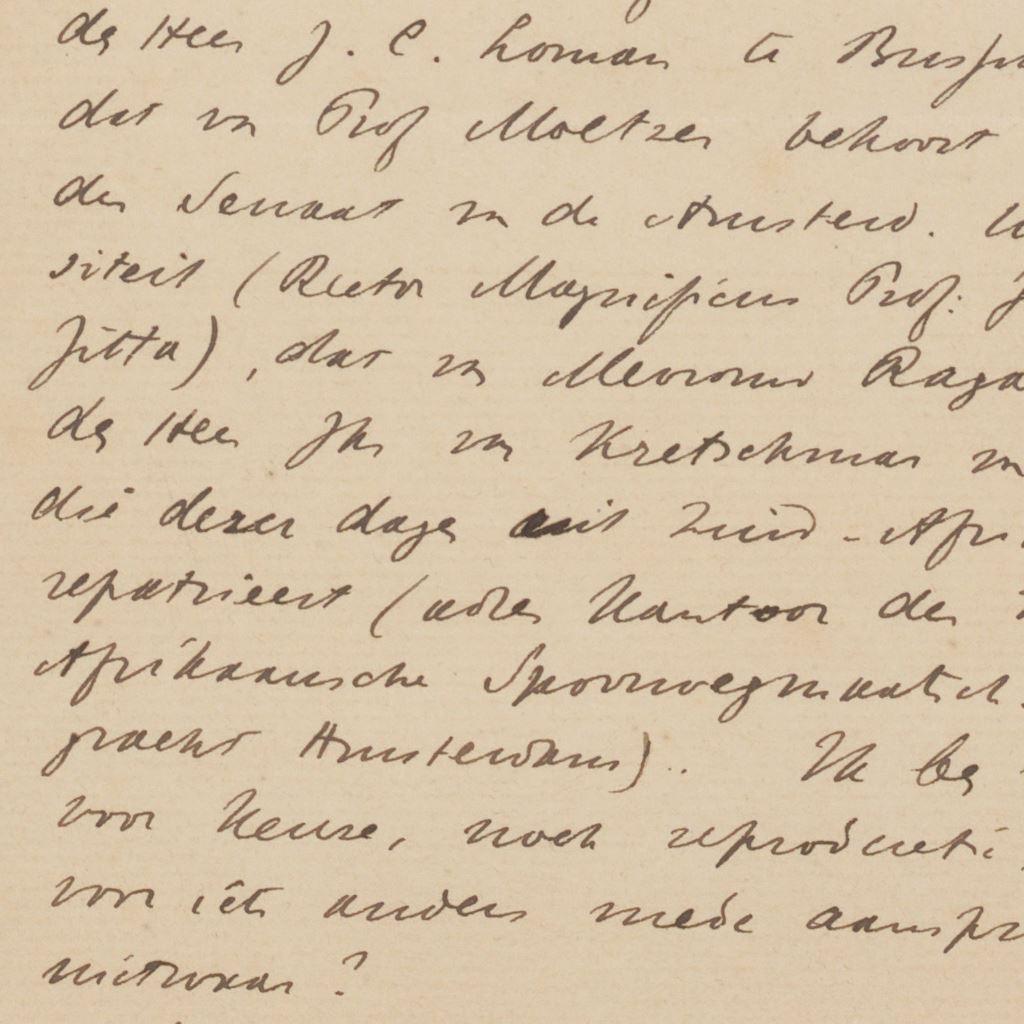 de Heer J. C. Loman te Bussu
dat van Prof Moltzer behoort
den Senaat van de Amsterd. U
siteit (Rector Magnificus Prof. J
Jitta), dat van Mevrouw Raga
de Heer Jhr van Kretschmar van
die dezer dagen uit Zuid-Afri
repatrieert (adres Kantoor der Z
Afrikaansche Spoorwegmaatsch.
gracht Amsterdam). Ik ben
voor keuze, noch reproducti
voor iets anders mede aanspr
nietwaar?